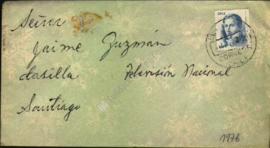 Señor
Jaime Guzmán
Casilla Televisión Nacional
Santiago
1976